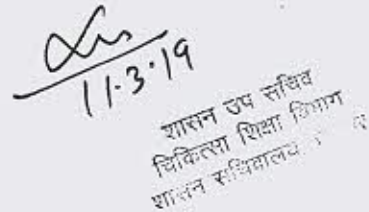 11.3.19
शासन उप सचिव
चिकित्सा शिक्षा विभाग
शासन सचिवालय